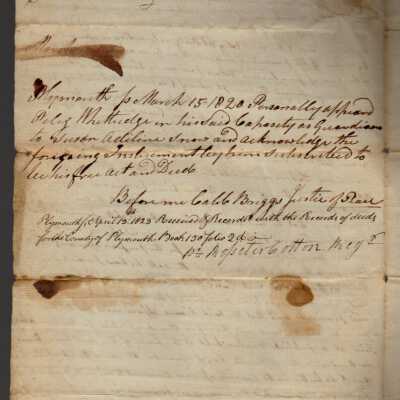 Plymouth ss March 15 1820 Personally appeard
Peleg Whittredge in his said Capasity as Guardian
to Susan Adeline Snow and acknowledge the
foregoing Instrument by him Subscribed to
be his free Act and Deed
Before me Caleb Briggs Justice of Peace
Plymouth ss April 12th 1823 Received & Recorded with the Records of deeds
for the County of Plymouth Book 150 folio
Pr Rossiter Cotton Regr